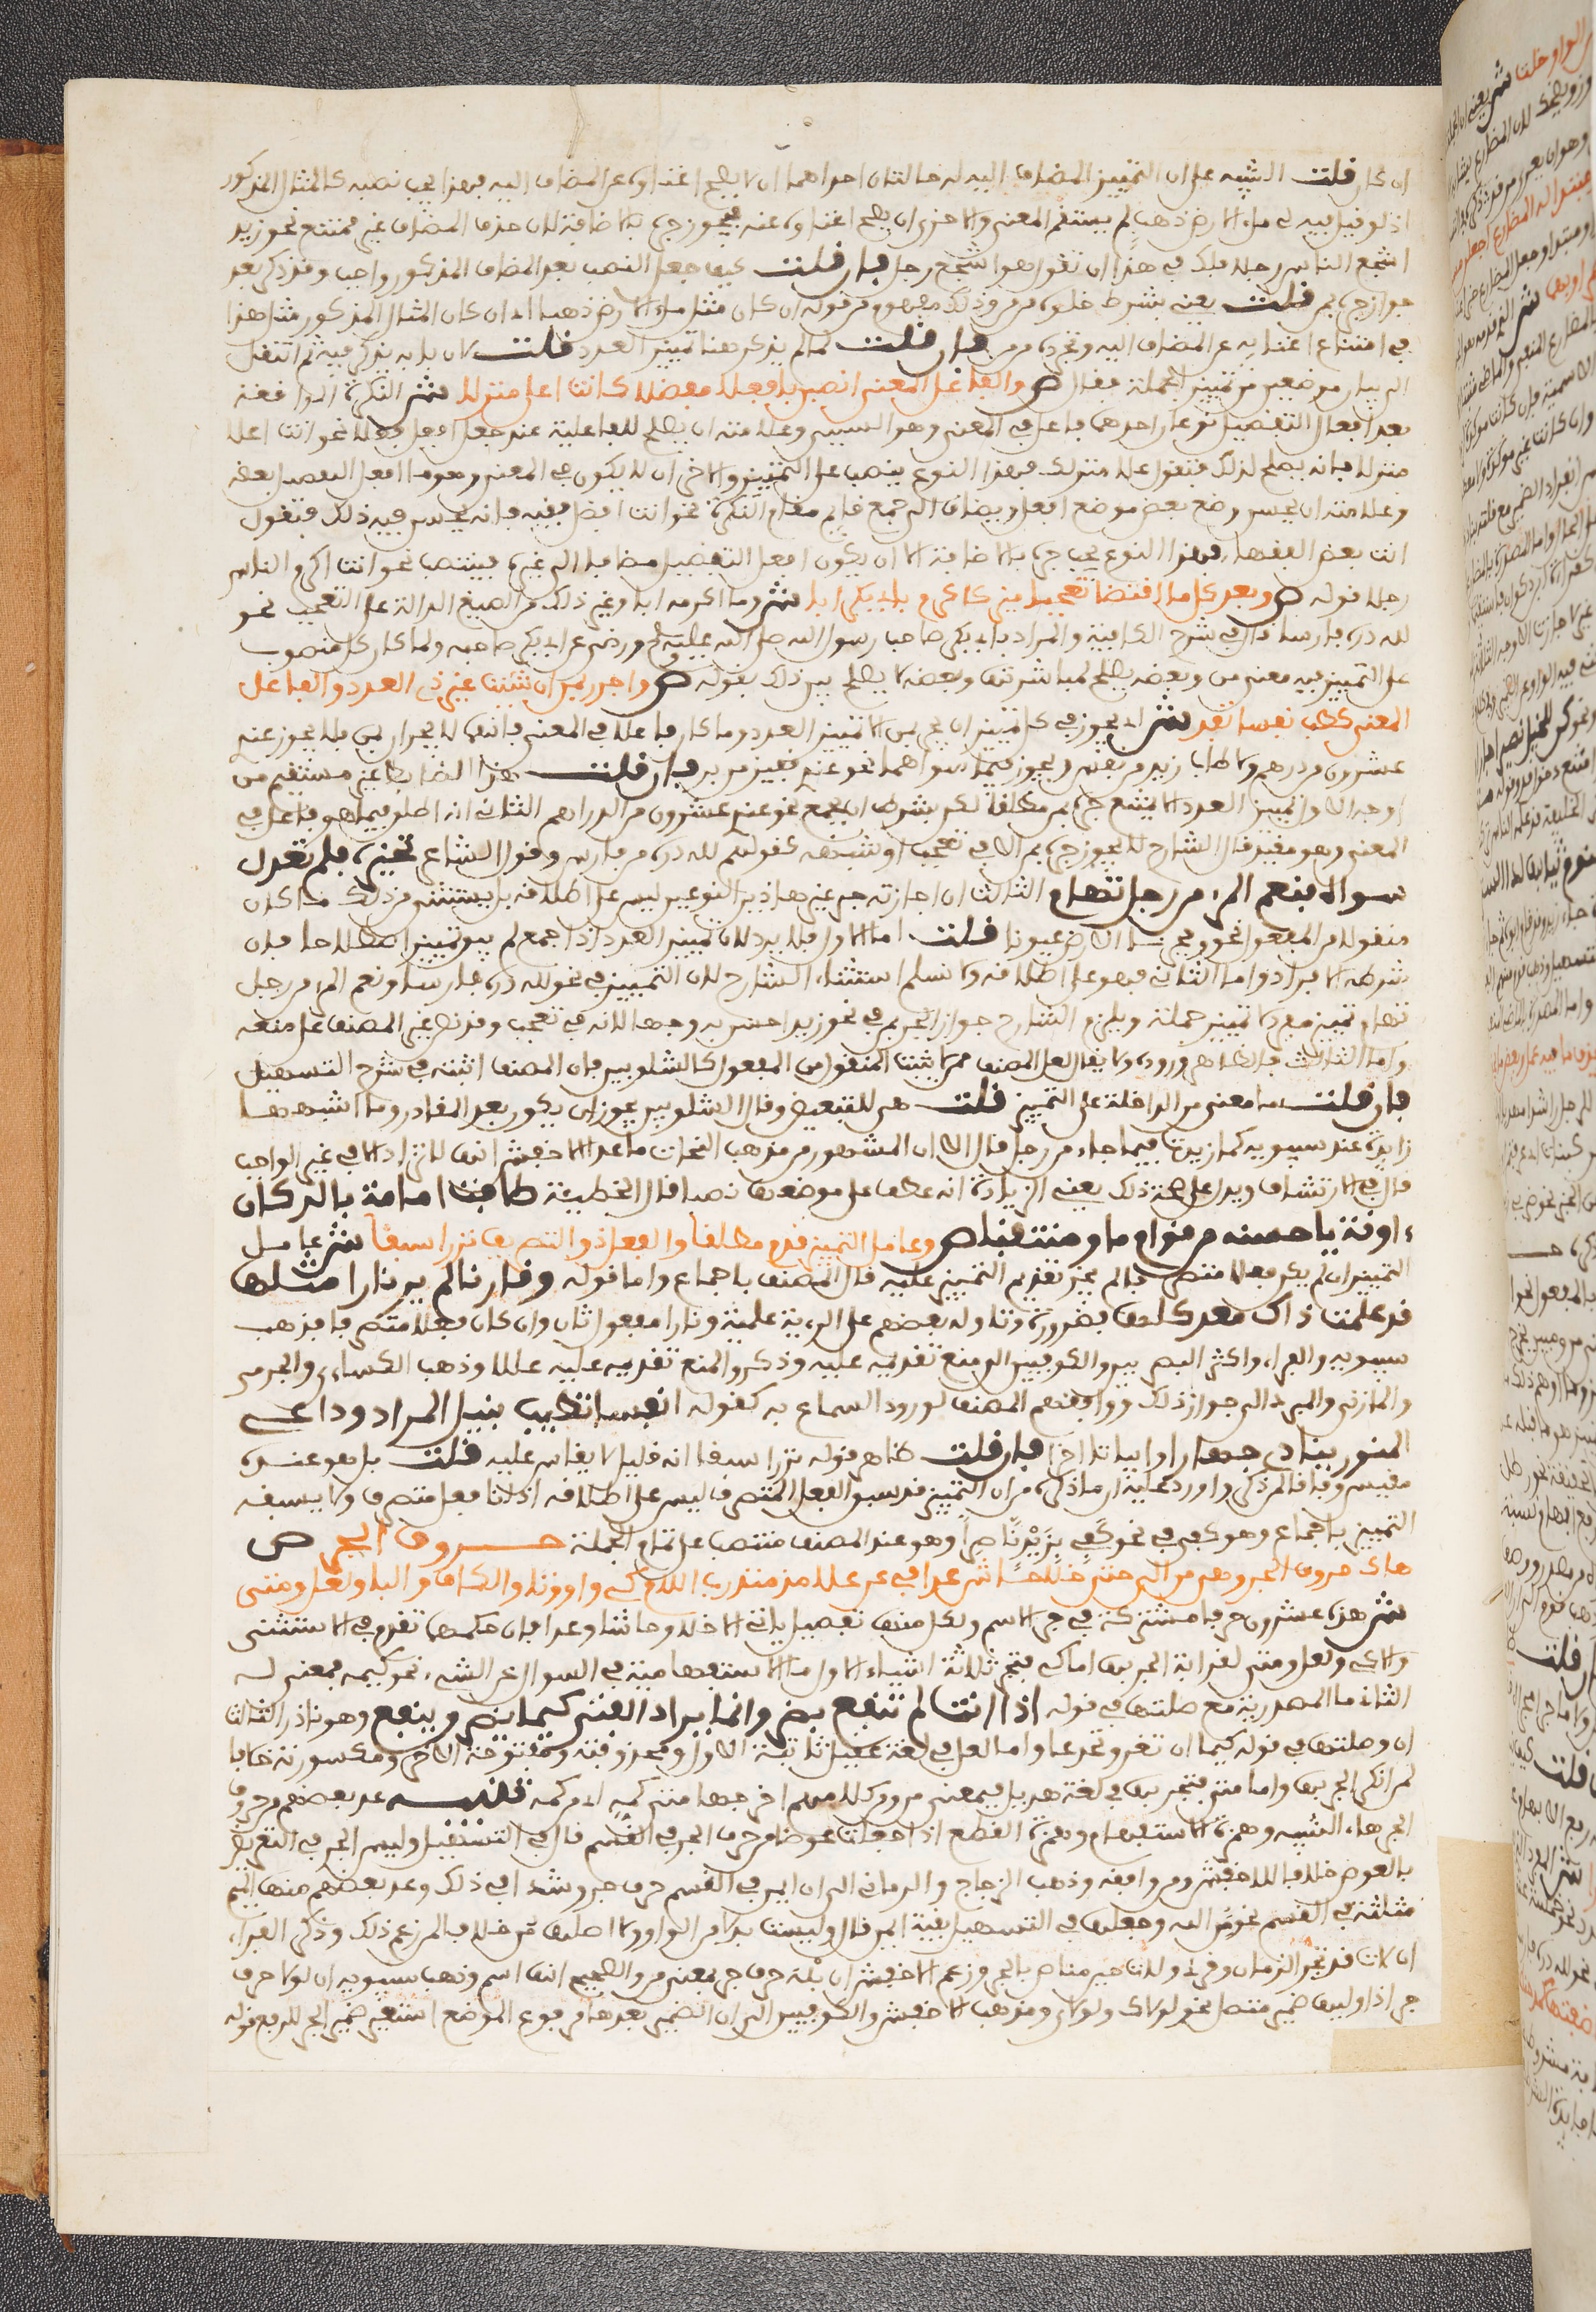 ان كان قلت التنبيه على ان التمييز المضاف اليه له حالتان احداهما ان لا يصلح اغناوه عن المضاف اليه فهذا يجب نصبه كالمثال المذكور
اذ لو قيل فيه لى ملء الارض ذهب لم يستقم المعنى والاخرى ان يصلح اغناوه عنه فيجوز جره بالاضافة لان حذف المضاف غير ممتنع نحو زيد
اشجع الناس رجلا فلك في هذا ان تقول هو اشجع رجل فان قلت كيف جعل النصب بعد المضاف المذكور واجبا وقد ذكر بعد
جواز جره بمن قلت يعنى بشرط خلوه من من وذلك مفهوم من قوله ان كان مثل ملء الارض ذهبا اى ان كان المثال المذكور مثل هذا
في امتناع اغنايه عن المضاف اليه وتجرده من من فان قلت لم لم يذكر هنا تمييز العدد قلت لان بابه يذكر فيه ثم انتقل
الى بيان موضعين من تمييز الجملة فقال ص والفاعل المعنى انصبن بافعلا مفضلا كانت اعلى منزلا ش النكرة الواقعة
بعد افعل التفضيل نوعان احدهما فاعل في المعنى وهو السببى وعلامته ان يصلح للفاعلية عند جعل افعل فعلا نحو انت اعلى
منزلا فانه يصلح لذلك فتقول علا منزلك فهذا النوع ينصب على التمييز والاخر ان لا يكون في المعنى وهو ما افعل التفضيل بعضه
وعلامته ان يحسن وضع بعض موضع افعل ويضاف الى جمع قايم مقام النكرة نحو انت افضل فقيه فانه يحسن فيه ذلك فتقول
انت بعض الفقهاء فهذا النوع يجب جره بالاضافة الا ان يكون افعل التفضيل مضافا الى غيره فينتصب نحو انت اكرم الناس
رجلا قوله ص وبعد كل ما اقتضى تعجبا ميز كاكرم بابى بكر ابا ش وما اكرمه ابا وغير ذلك من الصيغ الدالة على التعجب نحو
لله دره فارسا قال في شرح الكافية والمراد بابى بكر صاحب رسول الله صلى الله عليه وسلم ورضى عن ابى بكر صاحبه ولما كان كل منصوب
على التمييز فيه معنى من وبعضه يصلح لمباشرتها وبعضه لا يصلح بين ذلك بقوله ص واجرر بمن ان شئت غير ذى العدد والفاعل
المعنى كطب نفسا تفد ش اى يجوز في كل تمييز ان يجر بمن الا تمييز العدد وما كان فاعلا في المعنى فانهما لا يجران بمن فلا يجوز عندى
عشرون من درهم ولا طاب زيد من نفس ويجوز فيما سواهما نحو عندى قفيز من بر فان قلت هذا الضابط غير مستقيم من
اوجه الاول تمييز العدد لا يمتنع جره بمن مطلقا لكن بشرط ان يجمع نحو عندى عشرون من الدراهم الثانى انه اطلق فيما هو فاعل في
المعنى وهو مقيد قال الشارح لا يجوز جره بمن الا في تعجب او شبهه كقولهم لله دره من فارس وقول الشاعر تخيره فلم يعدل
سواه فنعم المرء من رجل تهام الثالث ان اجازته جر غير هاذين النوعين ليس على اطلاقه بل يستثنى من ذلك ما كان
منقولا من المفعول نحو وفجرنا الارض عيونا قلت اما الاول فلا يرد لان تمييز العدد اذا جمع لم يبق تمييزا اصطلاحا فان
شرطه الافراد واما الثانى فهو على اطلاقه ولا نسلم استثناء الشارح لان التمييز في نحو لله دره فارسا ونعم المرء من رجل
تهام تمييز مفرد لا تمييز جملة ويلزم الشارح جواز الجر بمن في نحو زيد احسن به وجها لانه في تعجب وقد نص غير المصنف على منعه
واما الثالث فالظاهر وروده ولا يقال لعل المصنف ممن لا يثبت المنقول من المفعول كالشلوبين فان المصنف اثبته في شرح التسهيل
فان قلت ما معنى من الداخلة على التمييز قلت هى للتبعيض وقال الشلوبين يجوز ان يكون بعد المقادير وما اشبهها
زايدة عند سيبويه كما زيدت فيما جاء من رجل قال الا ان المشهور من مذهب النحاة ما عدا الاخفش انها لا تزاد الا في غير الواجب
قال في الارتشاف ويدل على صحة ذلك يعنى الزيادة انه عطف على موضعها نصبا قال الحطيئة طافت امامة بالركبان
ءاونة يا حسنه من قوام ما ومنتقبا ص وعامل التمييز قدم مطلقا والفعل ذو التصريف نزرا سبقا ش عامل
التمييز ان لم يكن فعلا متصرفا لم يجز تقديم التمييز عليه قال المصنف باجماع واما قوله ونارنا لم ير نارا مثلها
قد علمت ذاك معد كلها فضرورة وتاوله بعضهم على الرءية علمية ونارا مفعول ثان وان كان فعلا متصرفا فمذهب
سيبويه والفراء واكثر البصريين والكوفيين الى منع تقديمه عليه وذكروا لمنع تقديمه عليه عللا وذهب الكساءى والجرمى
والمازنى والمبرد الى جواز ذلك ووافقهم المصنف لورود السماع به كقوله انفسا تطيب بنيل المراد وداعى
المنون ينادى جهارا وابياتا اخر فان قلت ظاهر قوله نزرا سبقا انه قليل لا يقاس عليه قلت بل هو عنده
مقيس وفاقا لمن ذكر واورد عليه ان ما ذكره من ان التمييز قد سبق الفعل المتصرف ليس على اطلاقه اذ لنا فعل متصرف ولا يسبقه
التمييز باجماع وهو كفى في نحو كفى بزيد ناصرا وهو عند المصنف منتصب على تمام الجملة حروف الجر ص
هاك حروف الجر وهى من الى حتى خلا حاشا عدا في عن على مذ منذ رب اللام كى واو وتا والكاف والبا ولعل ومتى
ش هذه عشرون حرفا مشتركة في جر الاسم ولكل منها تفصيل ياتى الا خلا وحاشا وعدا فان حكمها تقدم في الاستثنى
والا كى ولعل ومتى لغرابة الجر بهن اما كى فتجر ثلاثة اشياء الاول ما الاستفهامية في السوال عن الشىء نحو كيمه بمعنى لمه
الثانى ما المصدرية مع صلتها في قوله اذا انت لم تنفع فضر وانما يراد الفتى كيما يضر وينفع وهو نادر الثالث
ان وصلتها في قوله كيما ان تغر وتخدعا واما لعل في لغة عقيل ثابتة الاول ومحذوفته ومفتوحة الاخر ومكسورته خلافا
لمن انكر الجر بها واما متى فتجر بها في لغة هذيل بمعنى من ومن كلامهم اخرجها متى كمه اى من كمه تنبيه عد بعضهم من حروف
الجر هاء التنبيه وهمزة الاستفهام وهمزة القطع اذا جعلت عوضا من حرف الجر في القسم قال في التسهيل وليس الجر في التعويض
بالعوض خلافا للاخفش ومن وافقه وذهب الزجاج والرمانى الى ان ايمن في القسم حرف جر وشذا في ذلك وعد بعضهم منها الميم
مثلثة في القسم نحو م الله وجعلها في التسهيل بقية ايمن قال وليست بدلا من الواو ولا اصلها من خلافا لمن زعم ذلك وذكر الفراء
ان لات قد تجر الزمان وقرئ ولات حين مناص بالجر وزعم الاخفش ان بله حرف جر بمعنى من والصحيح انها اسم وذهب سيبويه ان لولا حرف
جر اذا وليها ضمير متصل نحو لولاك ولولاى ومذهب الاخفش والكوفيين الى ان الضمير بعدها مرفوع الموضع استعير ضمير الجر للرفع قوله